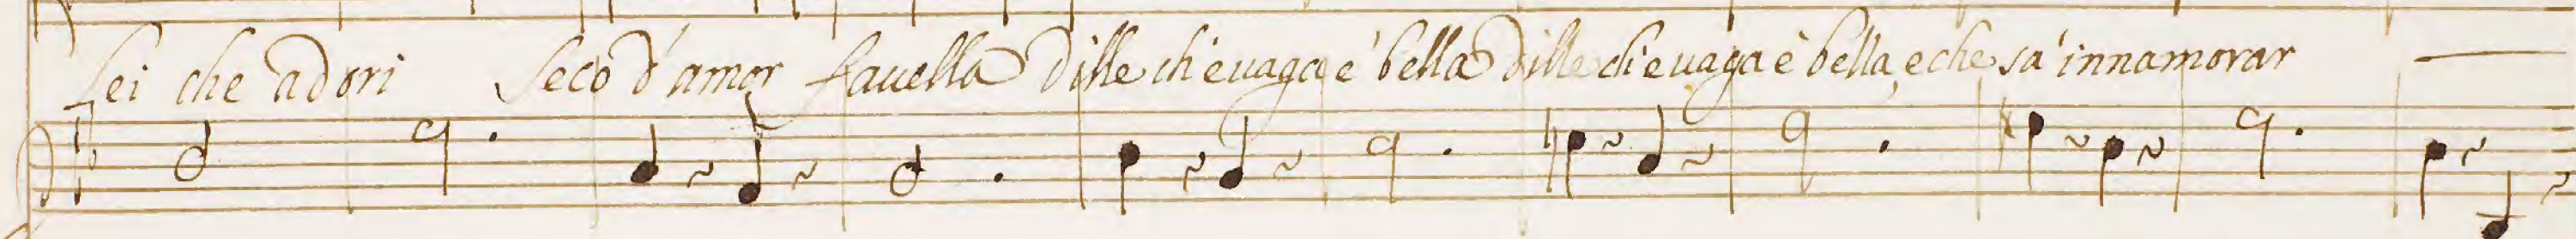 Lei che adori Seco d'amor favella Dille ch'è uaga e' bella Dille ch'e uaga è bella, e che sà innamorar